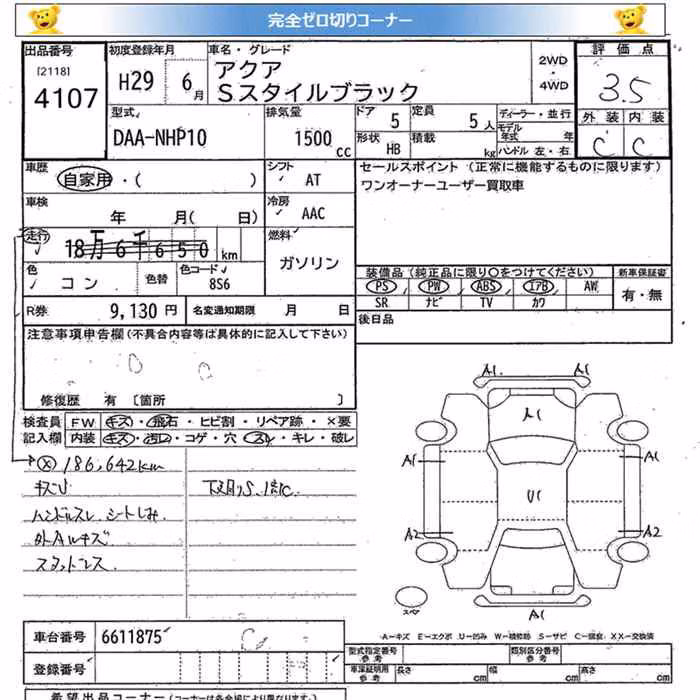 完全ゼロ切りコーナー
出品番号
[2118]
4107
初度登録年月
H29 6月
車名・グレード
アクア
Sスタイルブラック
2WD
・
4WD
評価点
3.5
外装 内装
C C
型式
DAA-NHP10
排気量
1500 cc
ドア 5
定員 5人
形状 HB
積載 kg
ディーラー・並行
モデル年式 年
ハンドル 左・右
車歴
自家用・( )
シフト
AT
車検
年 月( 日)
冷房
AAC
走行
18万6千650km
燃料
ガソリン
色
コン
色替
色コード
8S6
R券 9,130円
名変通知期限 月 日
セールスポイント (正常に機能するものに限ります)
ワンオーナーユーザー買取車
装備品(純正品に限り○をつけてください)
新車保証書
PS PW ABS エアB AW
SR ナビ TV カワ
有・無
後日品
注意事項申告欄(不具合内容等は具体的に記入して下さい)
修復歴 有 〔箇所 〕
検査員
記入欄
FW キズ・飛石・ヒビ割・リペア跡・×要
内装 キズ・汚れ・コゲ・穴・スレ・キレ・破レ
186,642km
ハンドルスレ シートしみ
外アルキズ
スタットレス
A1 A1
A1
A1 A1
U1
A2 A2
A1
スペア
A-キズ E-エクボ U-凹み W-補修跡 S-サビ C-腐食 XX-交換済
車台番号 6611875
登録番号
型式指定番号
参考
類別区分番号
参考
車庫証明用
参考
長さ cm 幅 cm 高さ cm
希望出品コーナー